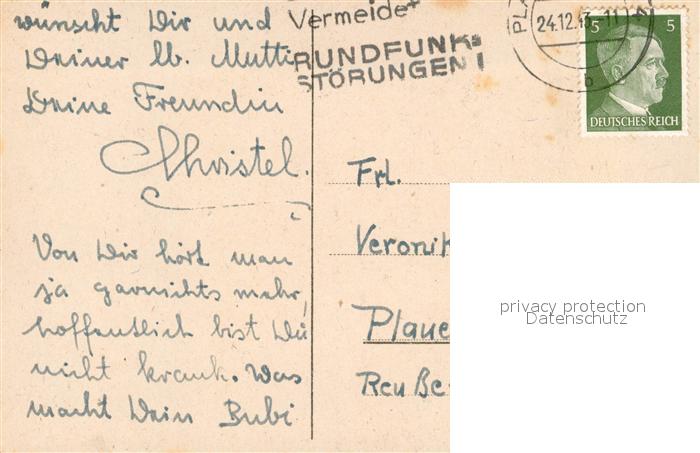 wünscht Dir und
Deiner lb. Mutti
Deine Freundin
Christel.
Von Dir hört man
ja garnichts mehr,
hoffentlich bist Du
nicht krank. Was
macht Dein Bubi
Vermeidet
RUNDFUNK=
STÖRUNGEN!
PL
24.12.43-11
b
5 5
DEUTSCHES REICH
Frl.
Veronik
Plaue
Reuße
privacy protection
Datenschutz